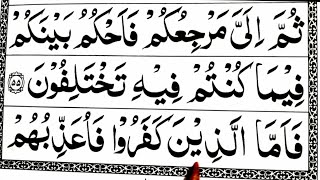 ثُمَّ اِلَیَّ مَرْجِعُكُمْ فَاَحْكُمُ بَیْنَكُمْ
فِیْمَا كُنْتُمْ فِیْهِ تَخْتَلِفُوْنَ ۝۵۵
فَاَمَّا الَّذِیْنَ كَفَرُوْا فَاُعَذِّبُهُمْ